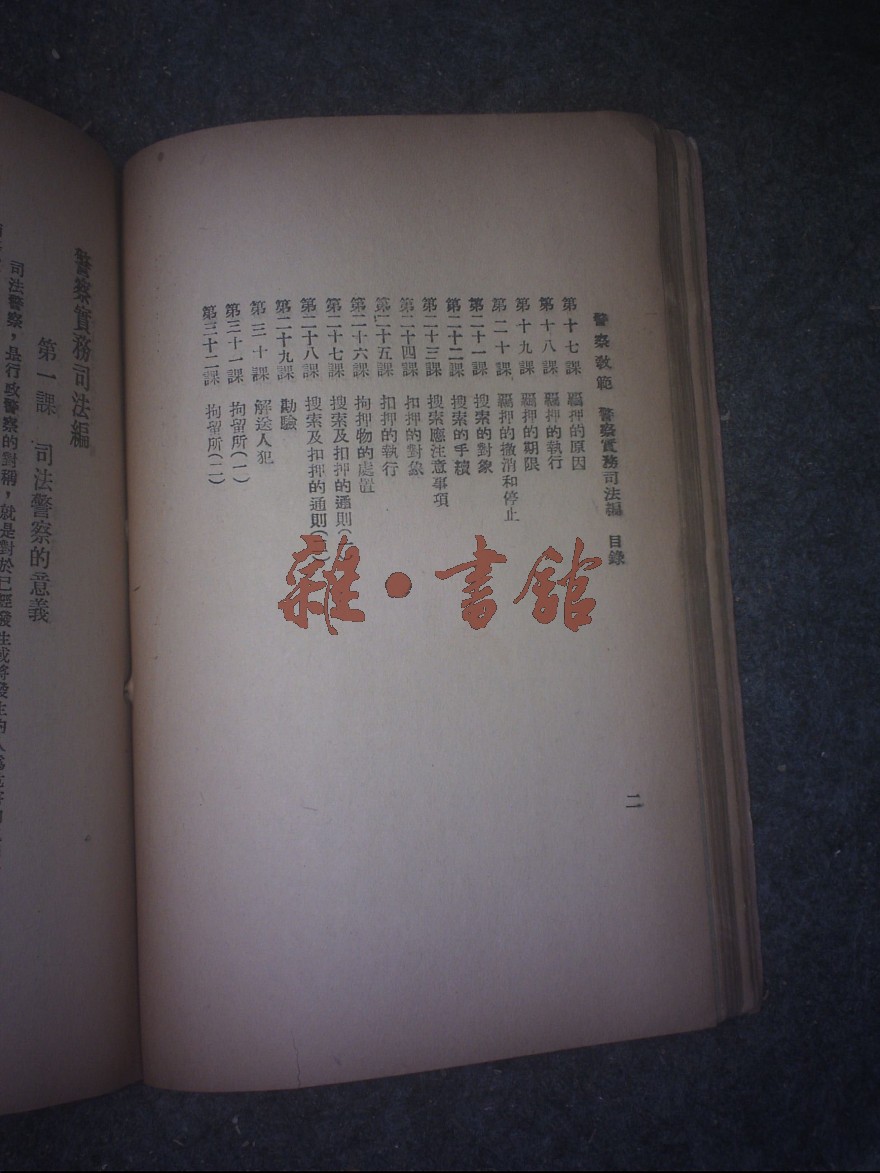 警察教範 警察實務司法編 目錄
第十七課 羈押的原因
第十八課 羈押的執行
第十九課 羈押的期限
第二十課 羈押的撤消和停止
第二十一課 搜索的對象
第二十二課 搜索的手續
第二十三課 搜索應注意事項
第二十四課 扣押的對象
第二十五課 扣押的執行
第二十六課 拘押物的處置
第二十七課 搜索及扣押的通則(
第二十八課 搜索及扣押的通則(
第二十九課 勘驗
第三十課 解送人犯
第三十一課 拘留所(一)
第三十二課 拘留所(二)
二
雜·書館
警察實務司法編
第一課 司法警察的意義
司法警察,是行政警察的對稱,就是對於已經發生或將發生的人爲